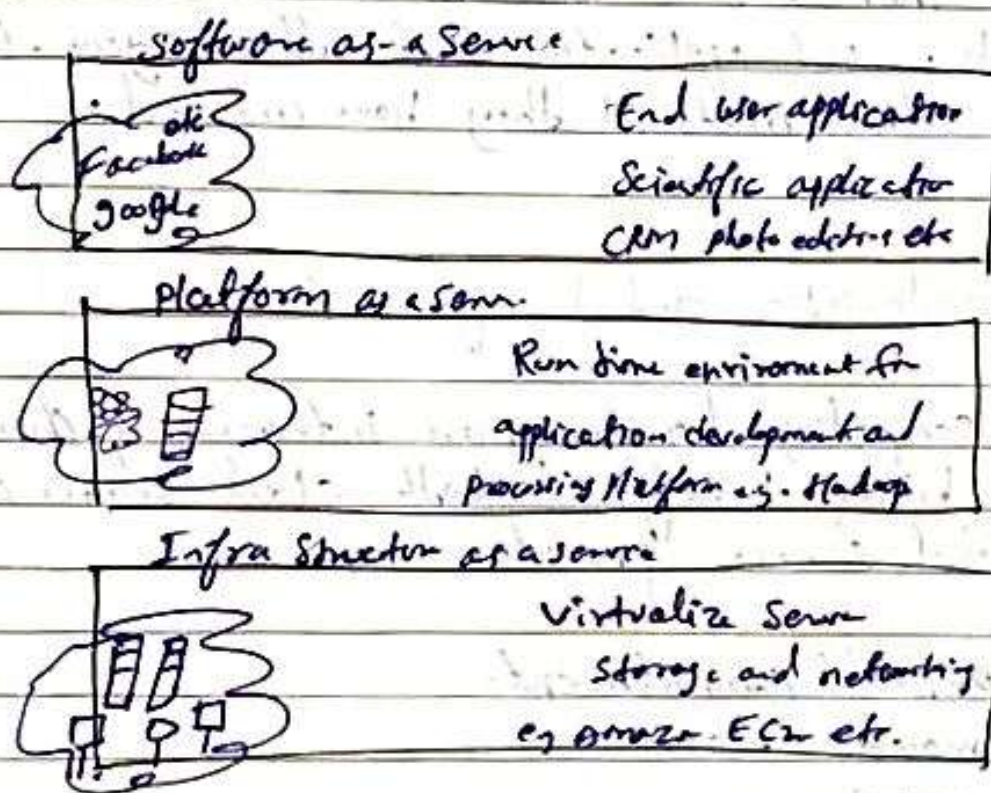 Software as-a Service
etc
Facebook
google
End user application
Scientific application
CRM photo editing etc
platform as a Serv.
Run time enviroment for
application development and
processing Platform e.g. Hadoop
Infra Structure as a service
Virtualize Server
Storage and networking
eg Amazon EC2 etc.